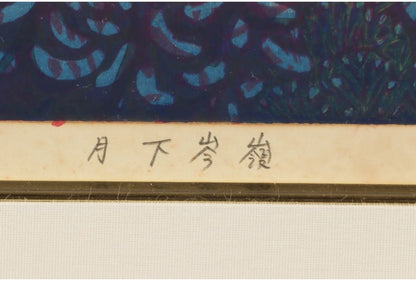 月下岑嶺